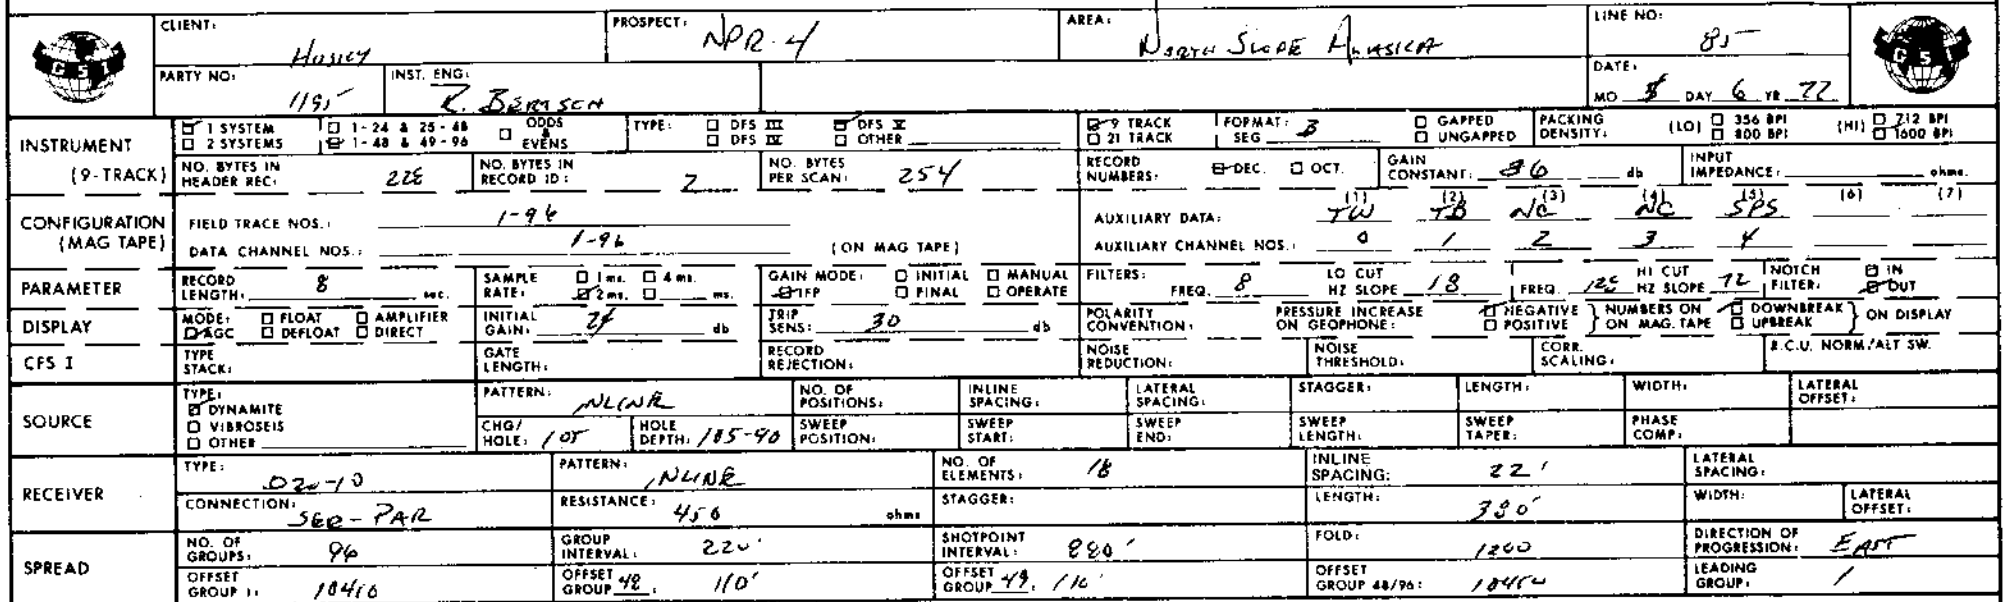 CLIENT: Husky PROSPECT: NPR-4 AREA: North Slope Alaska LINE NO: 85
GSI
GSI
PARTY NO: 1195 INST. ENG: R. BERTSCH DATE: MO DAY 6 YR 77
INSTRUMENT (9-TRACK)
1 SYSTEM 1-24 & 25-48 ODDS & EVENS TYPE: DFS III DFS V 9 TRACK FORMAT: SEG B GAPPED PACKING DENSITY: (LO) 356 BPI (HI) 712 BPI
2 SYSTEMS 1-48 & 49-96 DFS IV OTHER 21 TRACK UNGAPPED 800 BPI 1600 BPI
NO. BYTES IN HEADER REC: 228 NO. BYTES IN RECORD ID: 2 NO. BYTES PER SCAN: 254 RECORD NUMBERS: DEC. OCT. GAIN CONSTANT: 36 db INPUT IMPEDANCE: ohms.
CONFIGURATION (MAG TAPE)
FIELD TRACE NOS.: 1-96 AUXILIARY DATA: (1) TW (2) TB (3) NC (4) NC (5) SPS (6) (7)
DATA CHANNEL NOS.: 1-96 (ON MAG TAPE) AUXILIARY CHANNEL NOS.: 0 1 2 3 4
PARAMETER RECORD LENGTH: 8 sec. SAMPLE RATE: 1 ms. 4 ms. 2 ms. ms. GAIN MODE: INITIAL MANUAL IFP FINAL OPERATE FILTERS: FREQ. 8 LO CUT HZ SLOPE 18 FREQ. 125 HI CUT HZ SLOPE 72 NOTCH FILTER: IN OUT
DISPLAY MODE: FLOAT AMPLIFIER AGC DEFLOAT DIRECT INITIAL GAIN: 24 db TRIP SENS: 30 db POLARITY CONVENTION: PRESSURE INCREASE ON GEOPHONE: NEGATIVE POSITIVE NUMBERS ON ON MAG. TAPE DOWNBREAK UPBREAK ON DISPLAY
CFS I TYPE STACK: GATE LENGTH: RECORD REJECTION: NOISE REDUCTION: NOISE THRESHOLD: CORR. SCALING: R.C.U. NORM/ALT SW.
SOURCE TYPE: DYNAMITE VIBROSEIS OTHER
PATTERN: INLINE NO. OF POSITIONS: INLINE SPACING: LATERAL SPACING: STAGGER: LENGTH: WIDTH: LATERAL OFFSET:
CHG/HOLE: HOLE DEPTH: SWEEP POSITION: SWEEP START: SWEEP END: SWEEP LENGTH: SWEEP TAPER: PHASE COMP:
RECEIVER TYPE: PATTERN: INLINE NO. OF ELEMENTS: 18 INLINE SPACING: 22' LATERAL SPACING:
CONNECTION: SER-PAR RESISTANCE: 450 ohms STAGGER: LENGTH: WIDTH: LATERAL OFFSET:
SPREAD NO. OF GROUPS: 96 GROUP INTERVAL: 220' SHOTPOINT INTERVAL: 880' FOLD: 1200 DIRECTION OF PROGRESSION: EAST
OFFSET GROUP 1: OFFSET GROUP 48: 110' OFFSET GROUP 49: 110' OFFSET GROUP 48/96: LEADING GROUP: 1